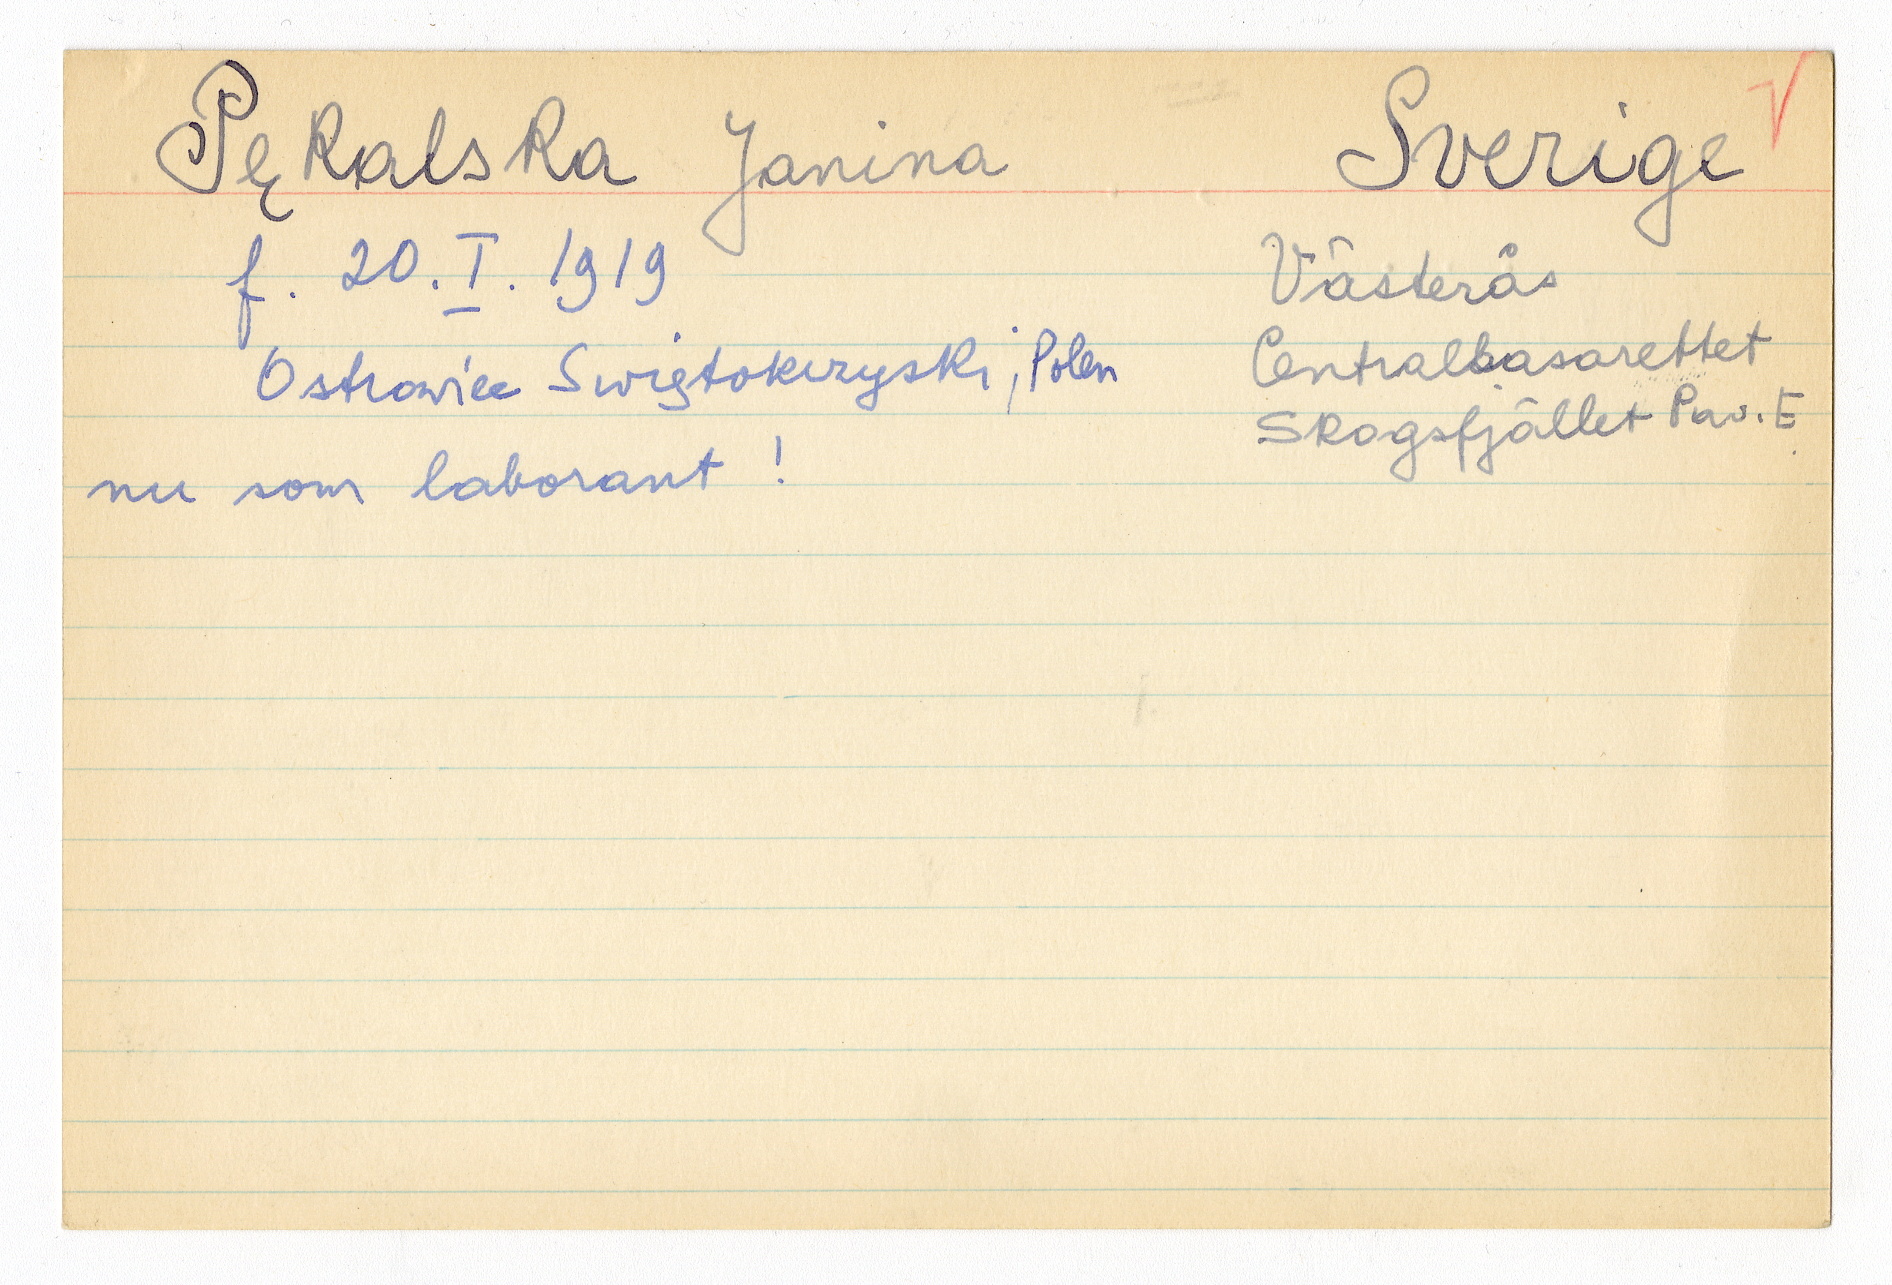 Pękalska Janina Sverige
f. 20. I. 1919 Västerås
Ostrowiec Swiętokrzyski, Polen Centrallasarettet
Skogsfjället Pav. E
nu som laborant!